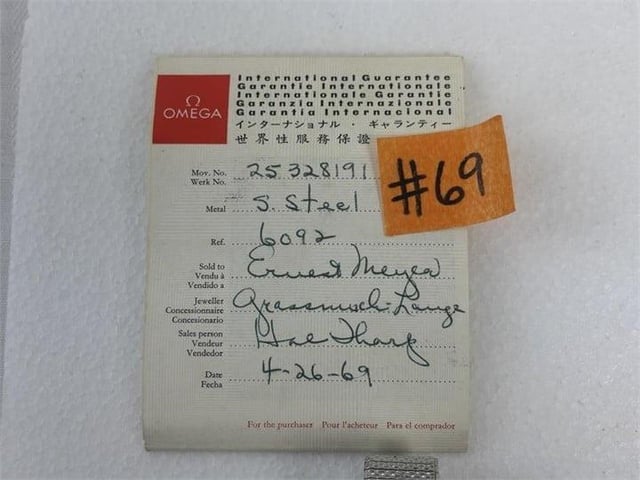 Ω
OMEGA
International Guarantee
Garantie Internationale
Internationale Garantie
Garanzia Internazionale
Garantia Internacional
インターナショナル・ギャランティー
世界性服務保證
#69
Mov. No. 25328191
Werk No.
Metal S. Steel
Ref. 6092
Sold to Ernest Meyer
Vendu à
Vendido a
Jeweller Grassmuck-Lange
Concessionnaire
Concesionario
Sales person Hal Tharp
Vendeur
Vendedor
Date 4-26-69
Fecha
For the purchaser Pour l'acheteur Para el comprador